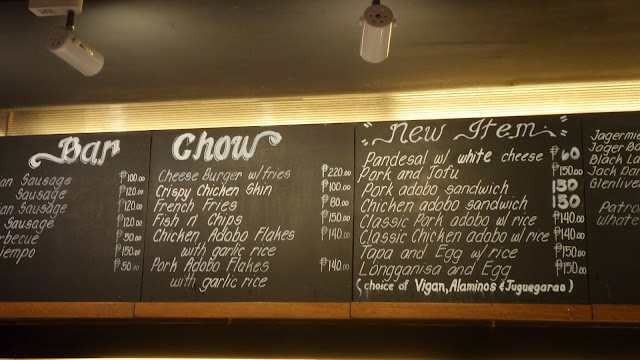 Bar
an Sausage ₱100.00
Sausage ₱120.00
an Sausage ₱120.00
Sausage ₱120.00
rbecue ₱30.00
iempo ₱150.00
₱30.00
Chow
Cheese Burger w/ fries ₱220.00
Crispy Chicken Skin ₱100.00
French Fries ₱80.00
Fish n Chips ₱150.00
Chicken Adobo Flakes ₱140.00
with garlic rice
Pork Adobo Flakes ₱140.00
with garlic rice
New Item
Pandesal w/ white cheese ₱60
Pork and Tofu ₱150.00
Pork adobo sandwich 130
Chicken adobo sandwich 150
Classic Pork adobo w/ rice ₱140.00
Classic Chicken adobo w/ rice ₱140.00
Tapa and Egg w/ rice ₱150.00
Longganisa and Egg ₱150.00
(choice of Vigan, Alaminos & Juguegarao)
Jagermie
Jager Bo
Black La
Jack Dan
Glenlive
Patro
whate